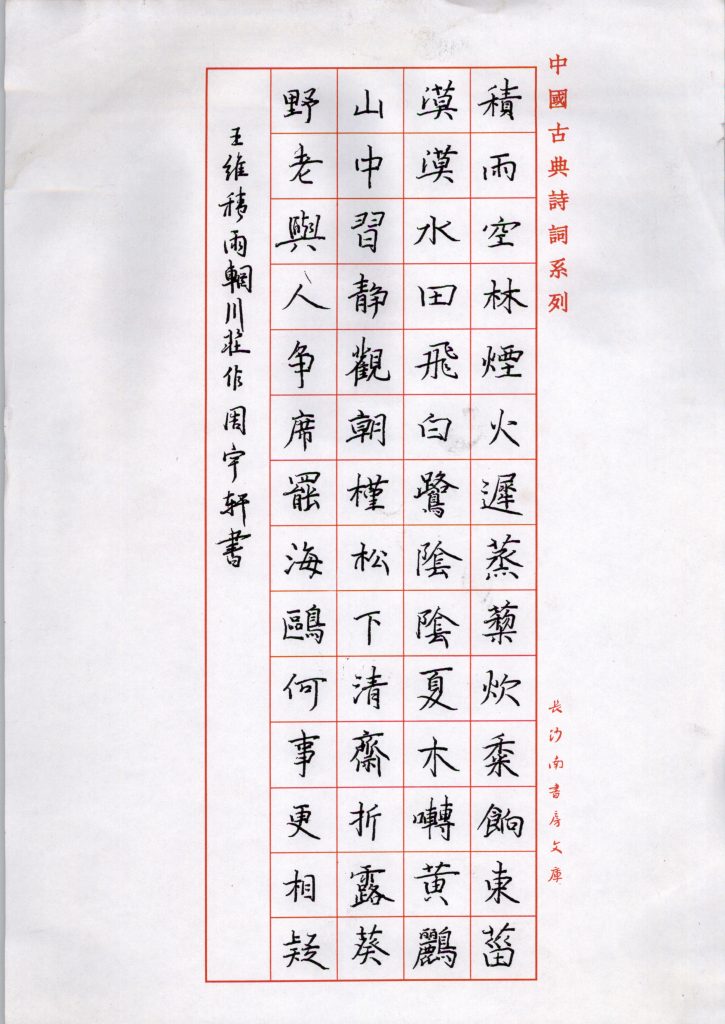 中國古典詩詞系列
積雨空林煙火遲蒸藜炊黍餉東菑
漠漠水田飛白鷺陰陰夏木囀黃鸝
山中習静觀朝槿松下清齋折露葵
野老與人争席罷海鷗何事更相疑
王維積雨輞川莊作周宇軒書
長沙南書房文庫